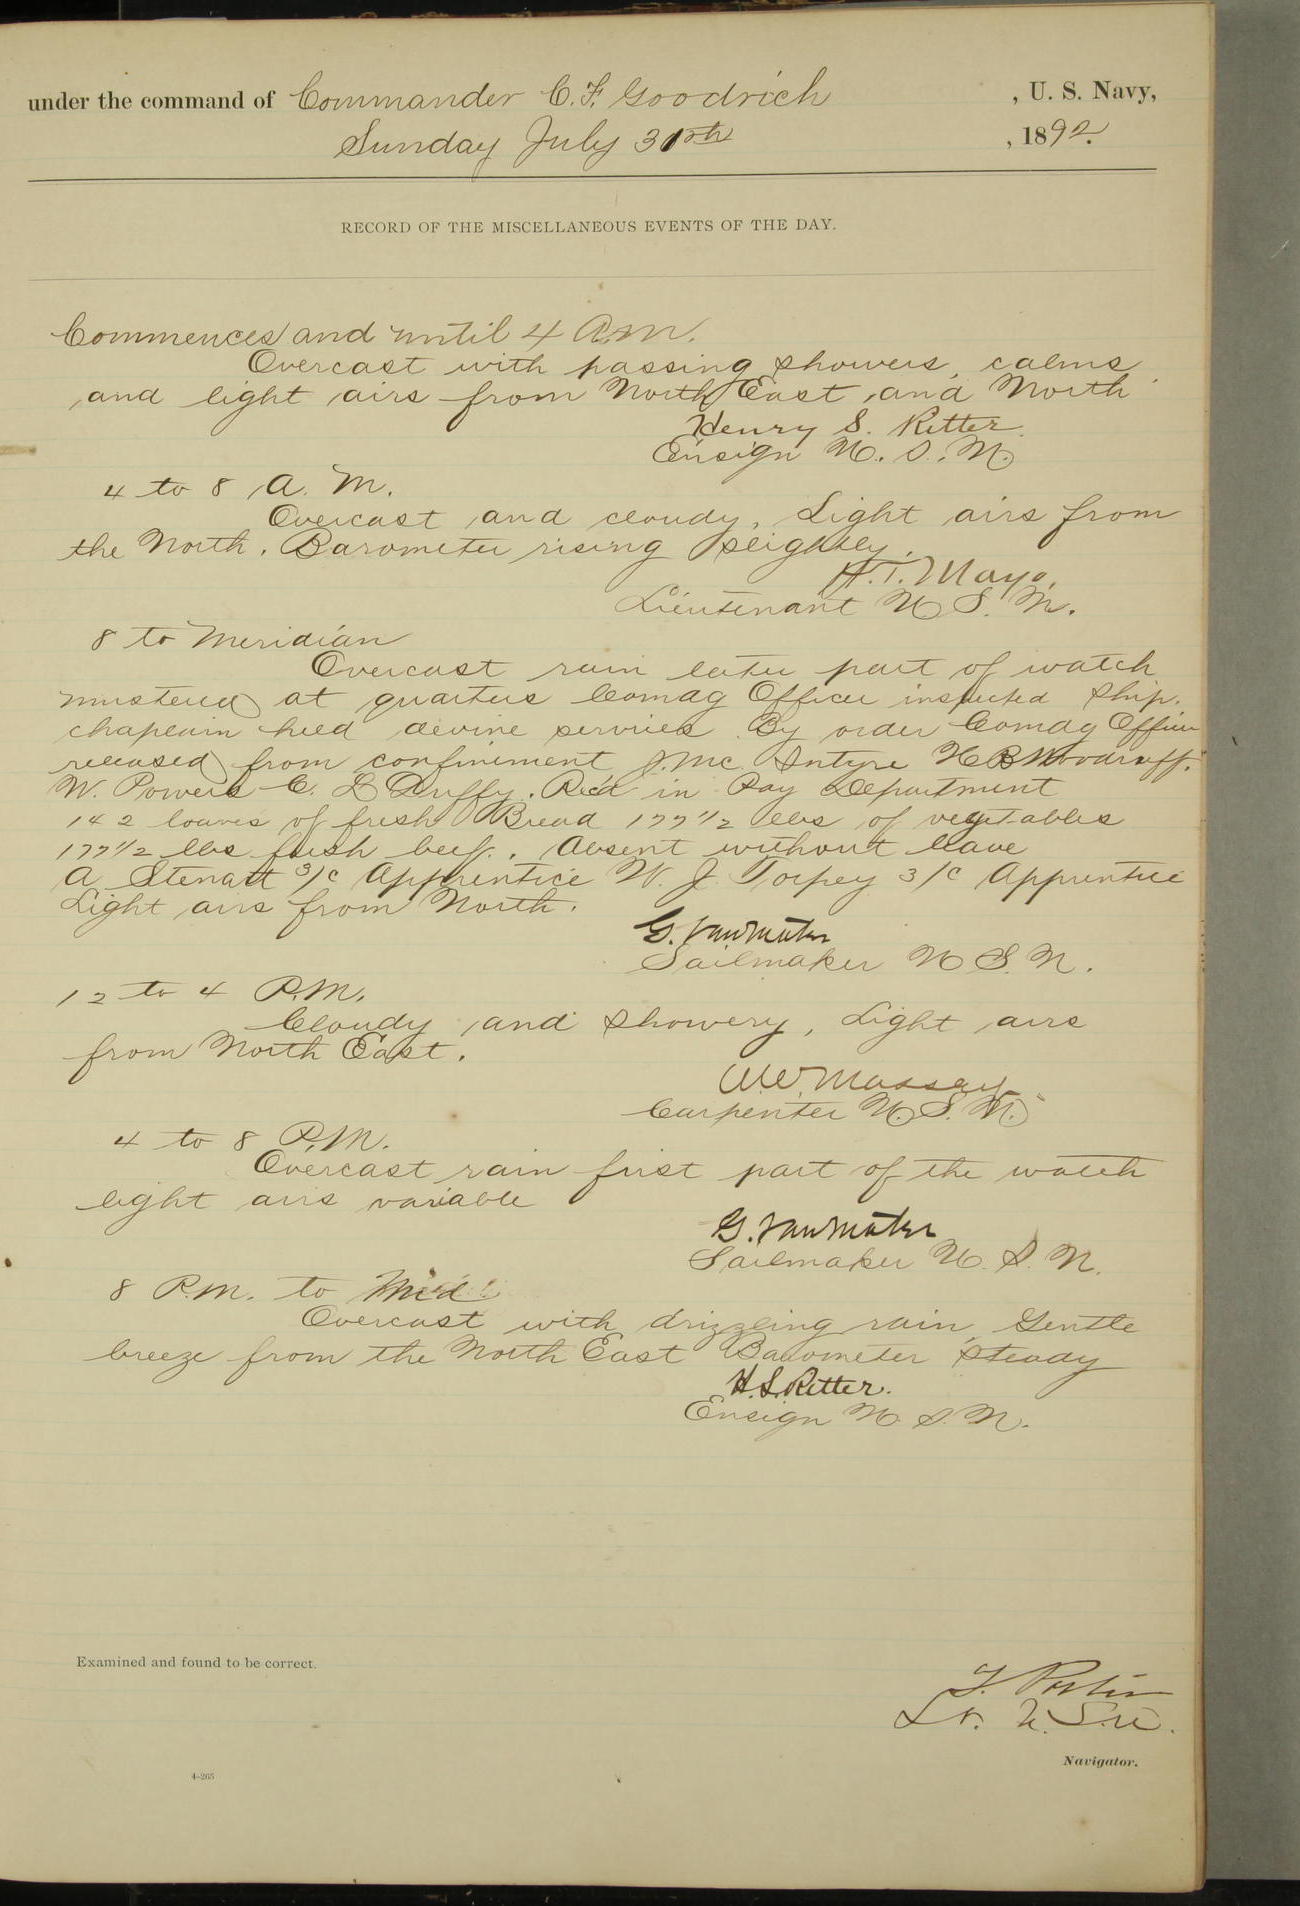 under the command of Commander C. F. Goodrich , U. S. Navy,
Sunday July 31th , 1892.
RECORD OF THE MISCELLANEOUS EVENTS OF THE DAY.
Commences and until 4 A.M.
Overcast with passing showers, calms
and light airs from North East and North
Henry S. Ritter
Ensign U. S. N.
4 to 8 A. M.
Overcast and cloudy. Light airs from
the North. Barometer rising slightly.
H. T. Mayo,
Lieutenant U. S. N.
8 to Meridian
Overcast rain later part of watch
mustered at quarters Comdg Officer inspected ship.
chaplain held devine services. By order Comdg Officer
released from confinement J. Mc Intyre H B Woodruff.
W. Powers C. L Duffy. Rec'd in Pay Department
142 loaves of fresh Bread 177 1/2 lbs of vegetables
177 1/2 lbs fresh beef. Absent without leave
A Stenatt 3/c Apprentice W. J. Torpey 3/c Apprentice
Light airs from North.
G. Van Mater
Sailmaker U. S. N.
12 to 4 P.M.
Cloudy and showery, Light airs
from North East.
W W. Massay
Carpenter U. S. N.
4 to 8 P.M.
Overcast rain first part of the watch
light airs variable
G. Van Mater
Sailmaker U. S. N.
8 P.M. to Mid.
Overcast with drizzling rain, Gentle
breeze from the North East Barometer steady
H. S. Ritter.
Ensign U. S. N.
Examined and found to be correct.
Lt. U. S. N.
Navigator.
4-265